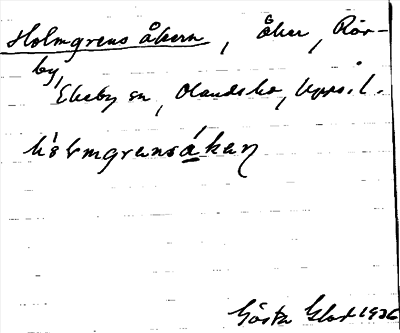 Holmgrens åkern, åker, Rör-
by,
Ekeby sn, Olands hd, Upps. l.
hòlmgrensákaη
Gösta 1936